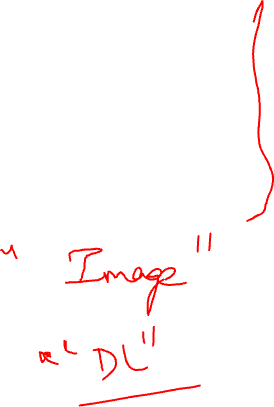 " Image "
"DL"